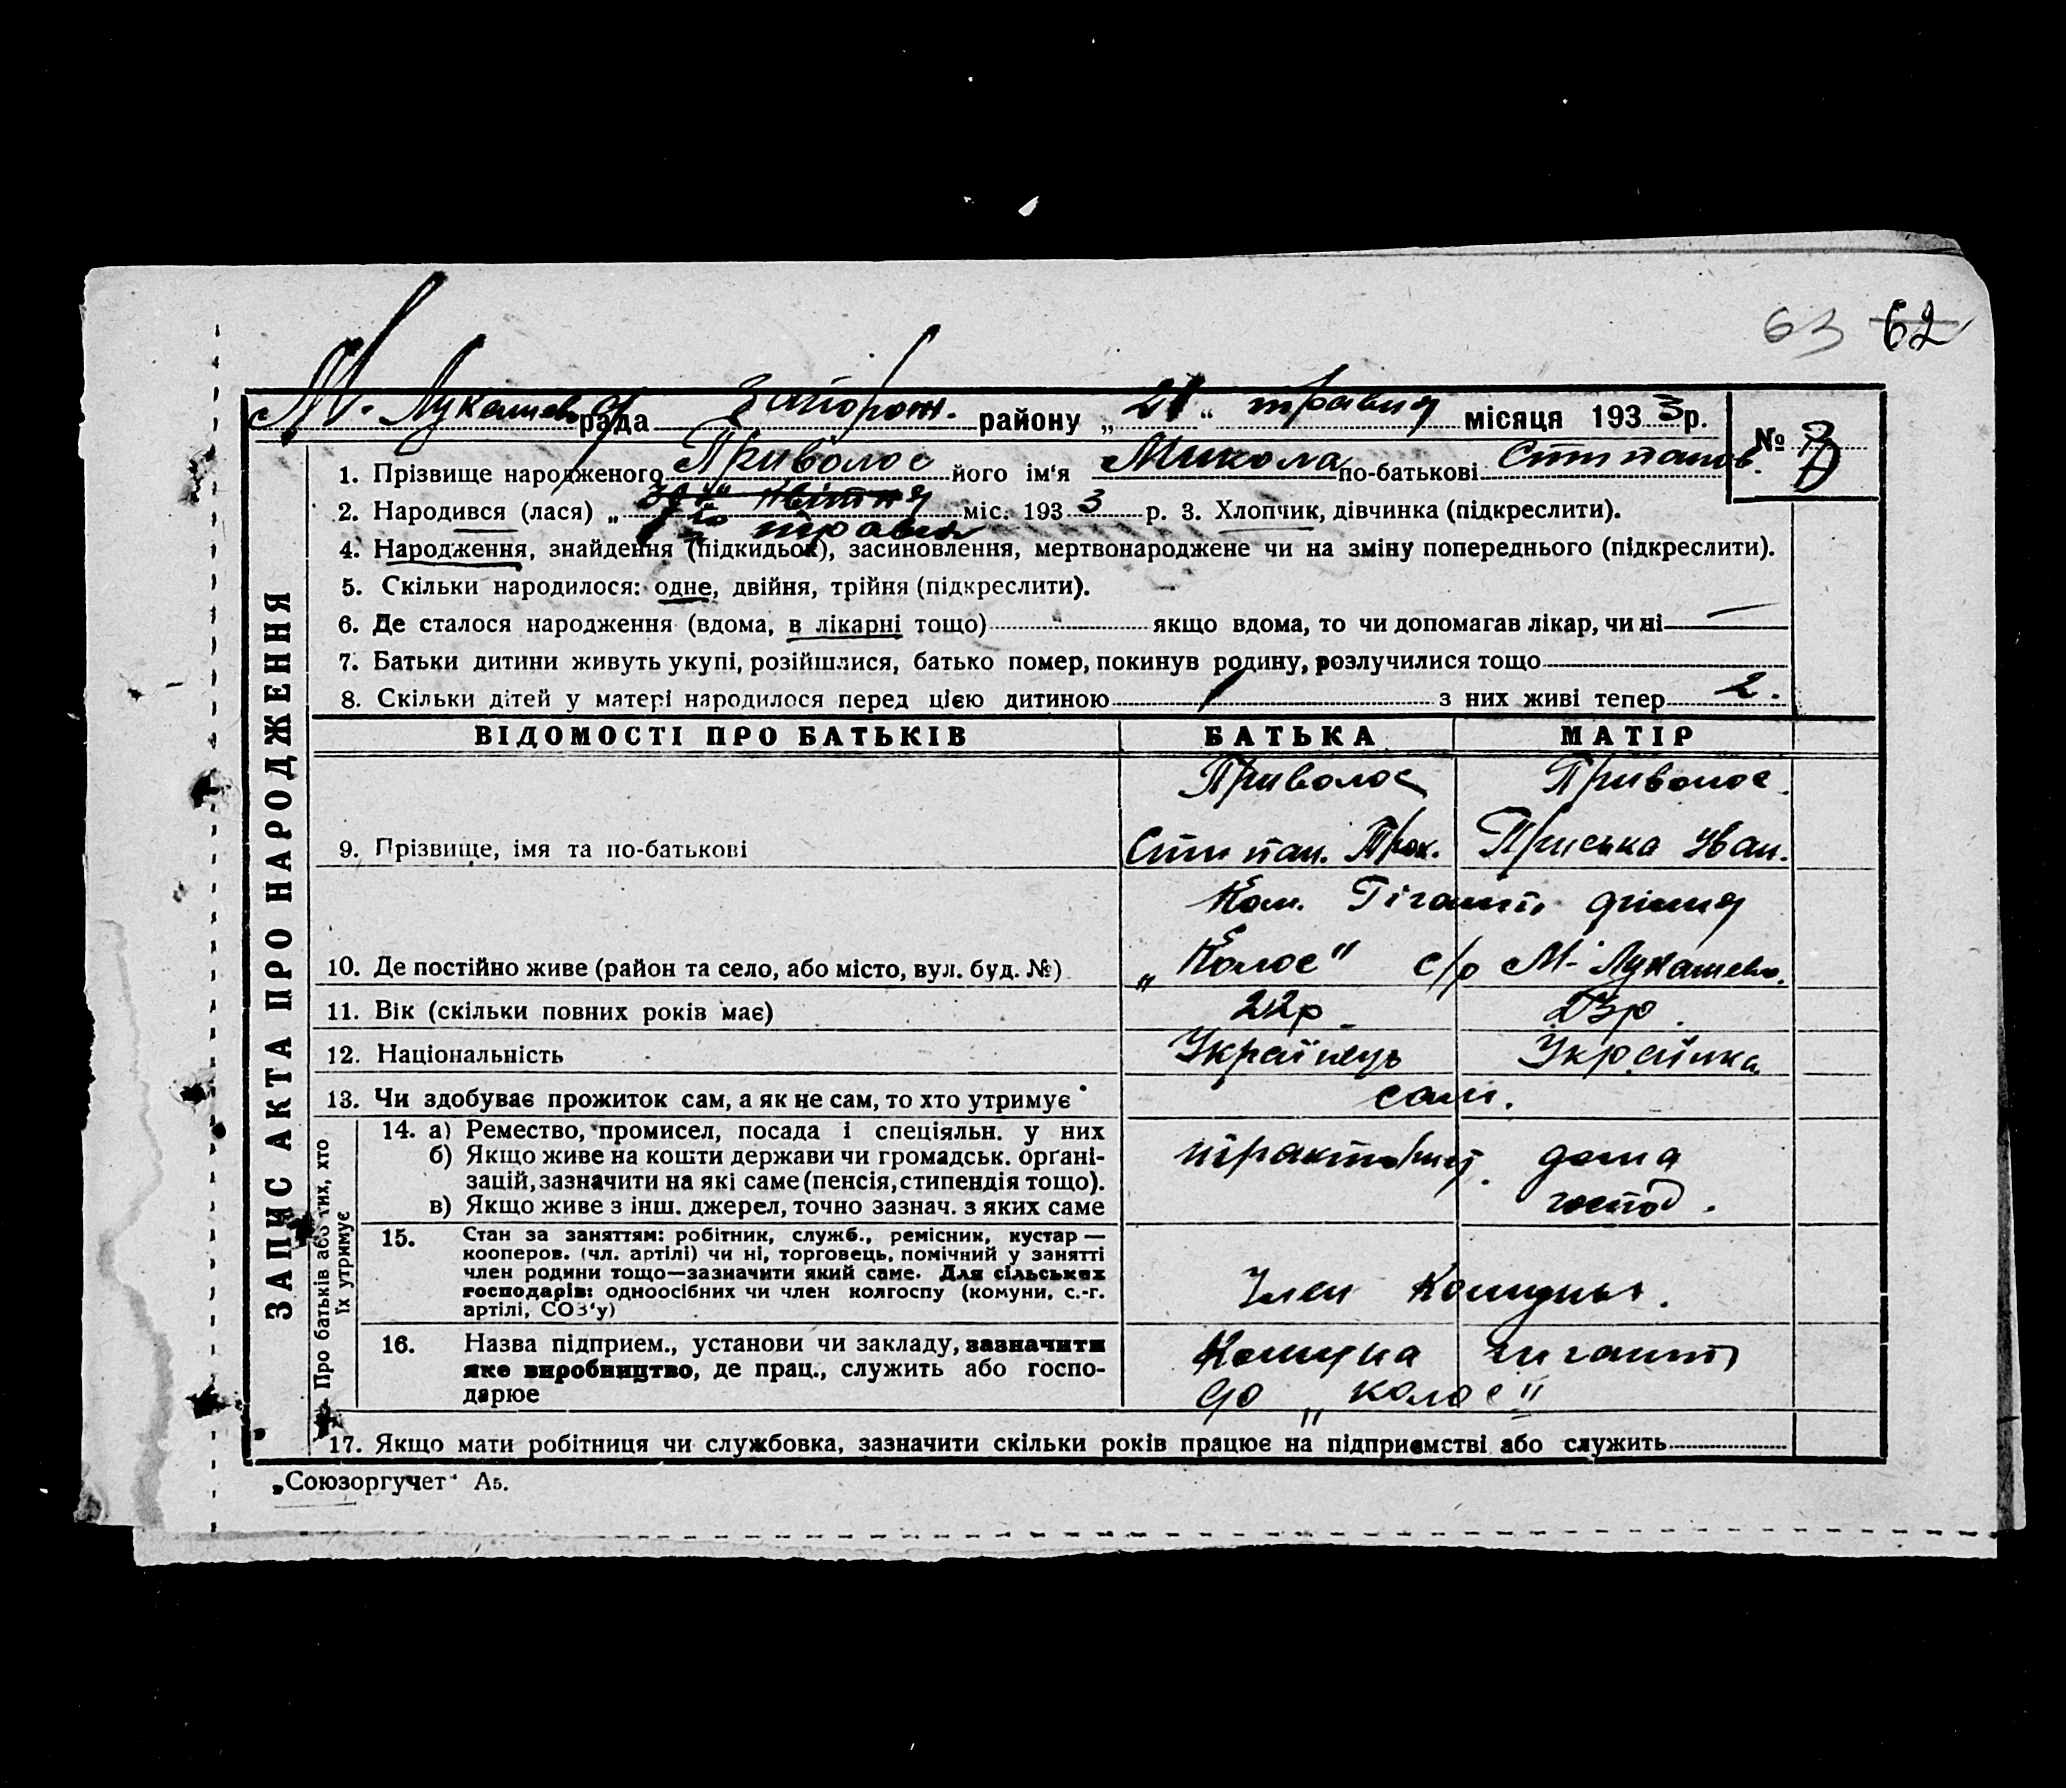 63 62
М. Лукашево рада Запорож. району „21“ травня місяця 1933 р.
№
1. Прізвище народженого Приволос його ім‘я Микола по-батькові Стипанов.
2. Народився (лася) „ 30 квітня міс. 1933 р. 3. Хлопчик, дівчинка (підкреслити).
травня
4. Народження, знайдення (підкидьок), засиновлення, мертвонароджене чи на зміну попереднього (підкреслити).
5. Скільки народилося: одне, двійня, трійня (підкреслити).
6. Де сталося народження (вдома, в лікарні тощо) якщо вдома, то чи допомагав лікар, чи ні —
7. Батьки дитини живуть укупі, розійшлися, батько помер, покинув родину, розлучилися тощо
8. Скільки дітей у матері народилося перед цією дитиною 1 з них живі тепер 2.
ЗАПИС АКТА ПРО НАРОДЖЕННЯ
ВІДОМОСТІ ПРО БАТЬКІВ БАТЬКА МАТІР
Приволос Приволос
9. Прізвище, імя та по-батькові Стипан. Прок. Приська Иван.
Ком. Гігант дільня
10. Де постійно живе (район та село, або місто, вул. буд. №) „Колос" с/р М-Лукашево.
11. Вік (скільки повних років має) 22р 23р.
12. Національність Українець Українка
13. Чи здобуває прожиток сам, а як не сам, то хто утримує сам.
Про батьків або тих, хто
їх утримує
14. а) Ремество, промисел, посада і спеціяльн. у них тракторист. дома
б) Якщо живе на кошти держави чи громадськ. органі-
зацій, зазначити на які саме (пенсія, стипендія тощо). господ.
в) Якщо живе з інш. джерел, точно зазнач. з яких саме
15. Стан за заняттям: робітник, служб., ремісник, кустар —
кооперов. (чл. артілі) чи ні, торговець, помічний у занятті
член родини тощо—зазначити який саме. Для сільських
господарів: одноосібних чи член колгоспу (комуни, с.-г.
артілі, СОЗ‘у) Член Комуны.
16. Назва підприєм., установи чи закладу, зазначити Комуна гигант
яке виробництво, де прац., служить або госпо-
дарює до „колос"
17. Якщо мати робітниця чи службовка, зазначити скільки років працює на підприємстві або служить
„Союзоргучет“ А5.